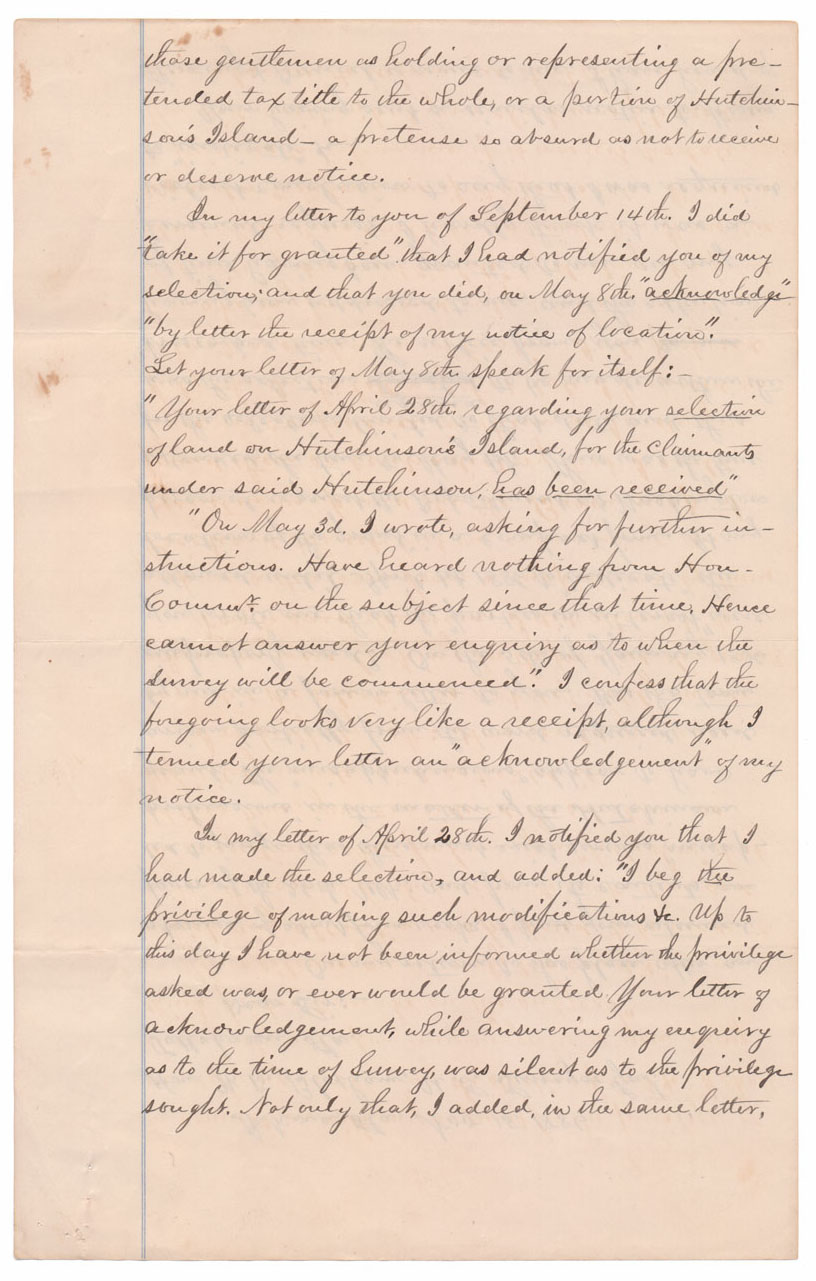 those gentlemen as holding or representing a pre-
tended tax title to the whole, or a portion of Hutchin-
son's Island - a pretense so absurd as not to receive
or deserve notice.
In my letter to you of September 14th. I did
"take it for granted" that I had notified you of my
selection; and that you did, on May 8th. "acknowledge"
"by letter the receipt of my notice of location".
Let your letter of May 8th speak for itself:-
"Your letter of April 28th. regarding your selection
of land on Hutchinson's Island, for the claimants
under said Hutchinson, has been received"
"On May 3d. I wrote, asking for further in-
structions. Have heard nothing from Hon-
Commr. on the subject since that time. Hence
cannot answer your enquiry as to when the
survey will be commenced". I confess that the
foregoing looks very like a receipt, although I
termed your letter an "acknowledgement" of my
notice.
In my letter of April 28th. I notified you that I
had made the selection, and added: "I beg the
privilege of making such modifications &c. Up to
this day I have not been informed whether the privilege
asked was, or ever would be granted Your letter of
acknowledgement, while answering my enquiry
as to the time of Survey, was silent as to the privilege
sought. Not only that, I added, in the same letter,